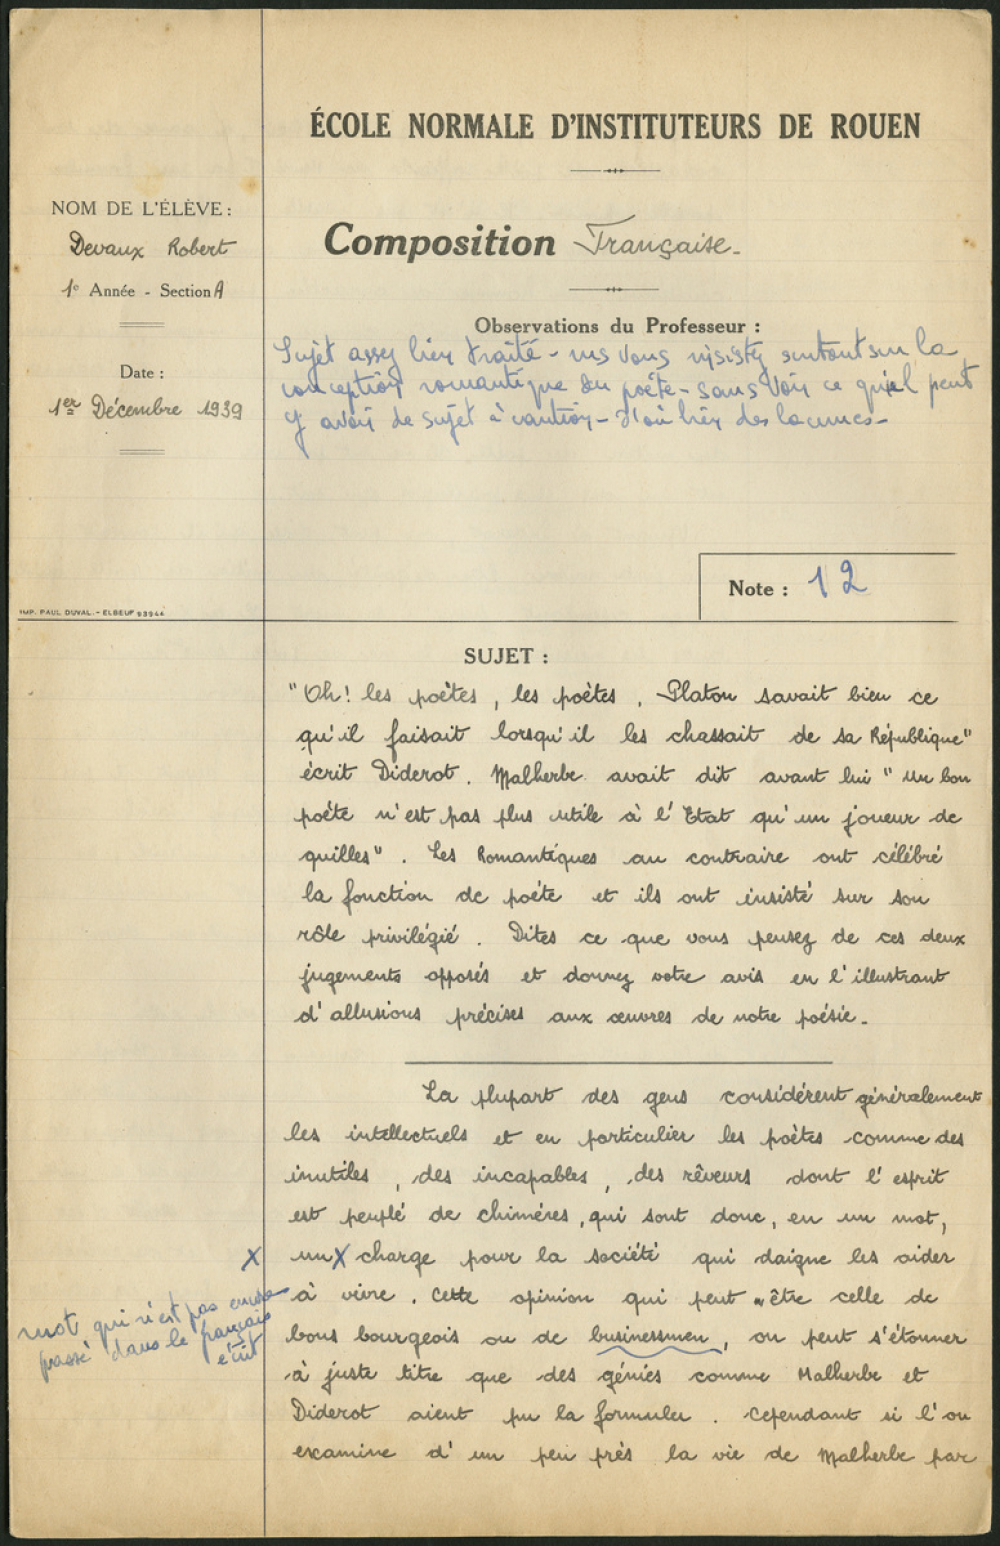 ÉCOLE NORMALE D'INSTITUTEURS DE ROUEN
NOM DE L'ÉLÈVE :
Devaux Robert
1e Année - Section A
Date :
1er Décembre 1939
Composition Française.
Observations du Professeur :
Sujet assez bien traité - ms vous insistez surtout sur la
conception romantique du poète - sans voir ce qu'il peut
y avoir de sujet à caution - d'où bien des lacunes -
Note : 12
IMP. PAUL DUVAL. - ELBEUF 93944
SUJET :
"Oh ! les poètes, les poètes. Platon savait bien ce
qu'il faisait lorsqu'il les chassait de sa République"
écrit Diderot. Malherbe avait dit avant lui "Un bon
poète n'est pas plus utile à l'Etat qu'un joueur de
quilles". Les Romantiques au contraire ont célébré
la fonction de poète et ils ont insisté sur son
rôle privilégié. Dites ce que vous pensez de ces deux
jugements opposés et donnez votre avis en l'illustrant
d'allusions précises aux œuvres de notre poésie.
La plupart des gens considèrent généralement
les intellectuels et en particulier les poètes comme des
inutiles, des incapables, des rêveurs dont l'esprit
est peuplé de chimères, qui sont donc, en un mot,
X un X charge pour la société qui daigne les aider
à vivre. Cette opinion qui peut être celle de
bons bourgeois ou de businessmen, on peut s'étonner
à juste titre que des génies comme Malherbe et
Diderot aient pu la formuler. Cependant si l'on
examine d'un peu près la vie de Malherbe par
mot qui n'est pas encore
passé dans le français
écrit